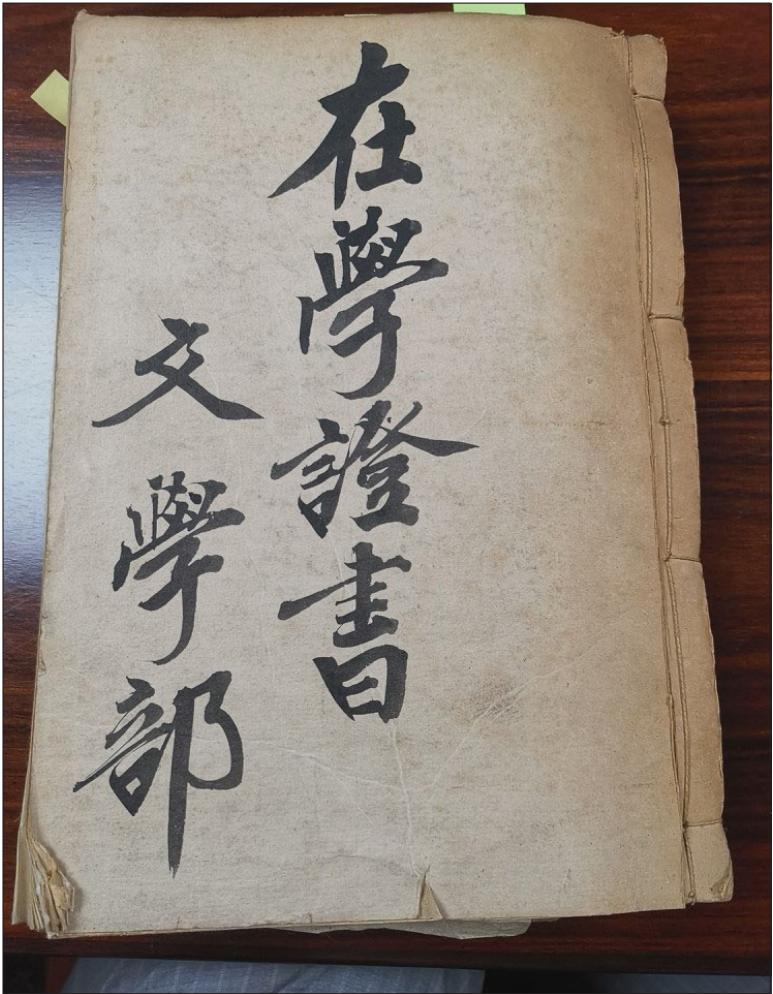 在學證書
文學部